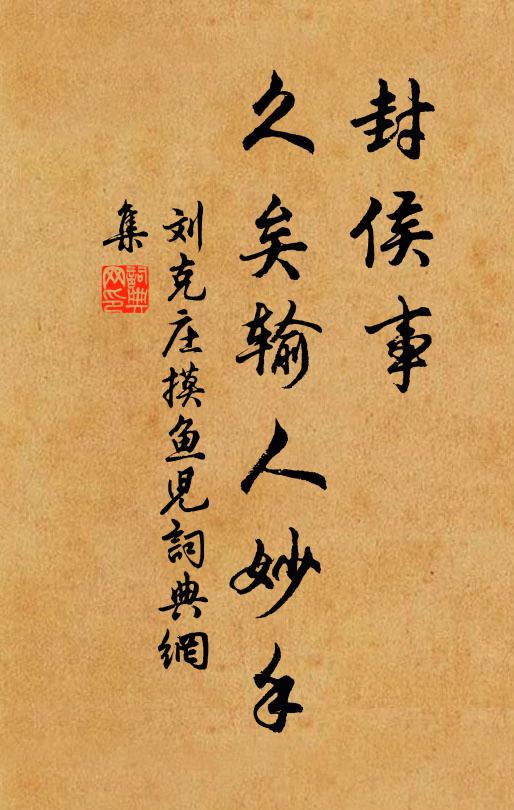 封侯事
久矣输人妙手
刘克庄摸鱼儿詞典網
集
詞典
网印